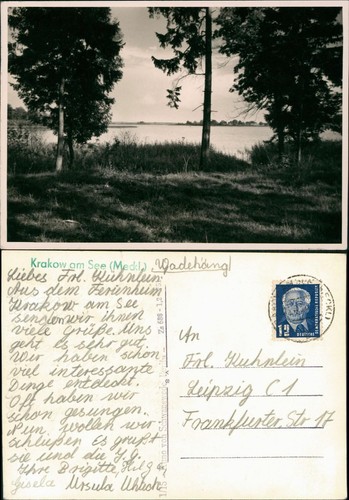 Krakow am See (Meckl.) Wadehäng
Liebes Frl. Kuhnlein
Aus dem Ferienheim
Krakow am See
senden wir ihnen
viele Grüße. Uns
geht es sehr gut.
Wir haben schon
viel interessante
Dinge entdeckt.
Oft haben wir
schon gesungen.
Nun wollen wir
schlußen Es grüßt
sie und die J.G.
Ihre Brigitte, Helga,
Gisela Ursula
An
Frl. Kuhnlein
Leipzig C 1
Frankfurter Str 17